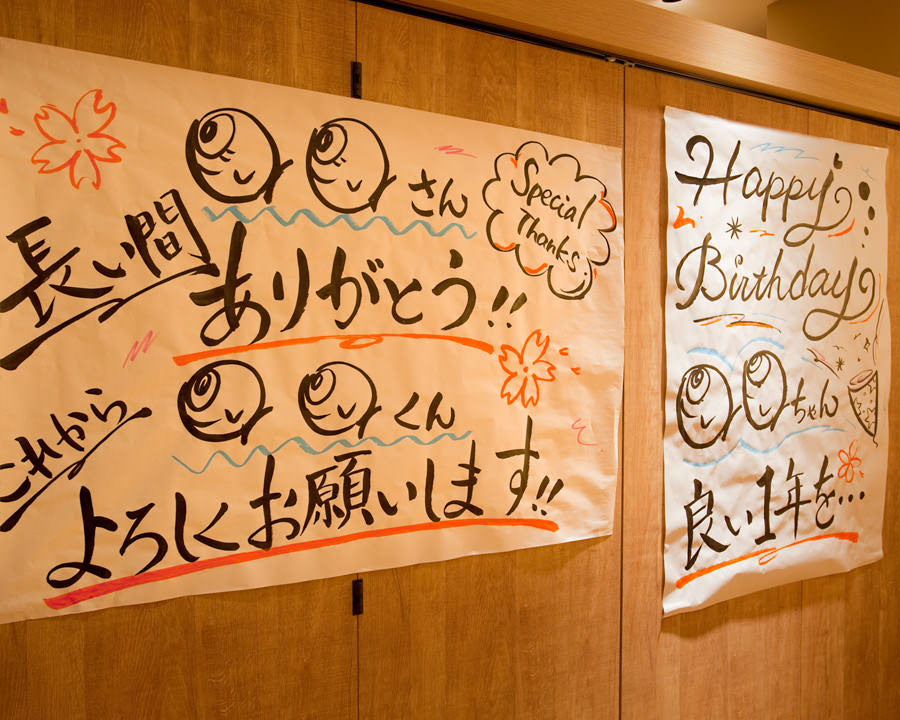 さん
長い間
ありがとう!!
Special
Thanks.
くん
これから
よろしくお願いします!!
Happy
Birthday
ちゃん
良い1年を...